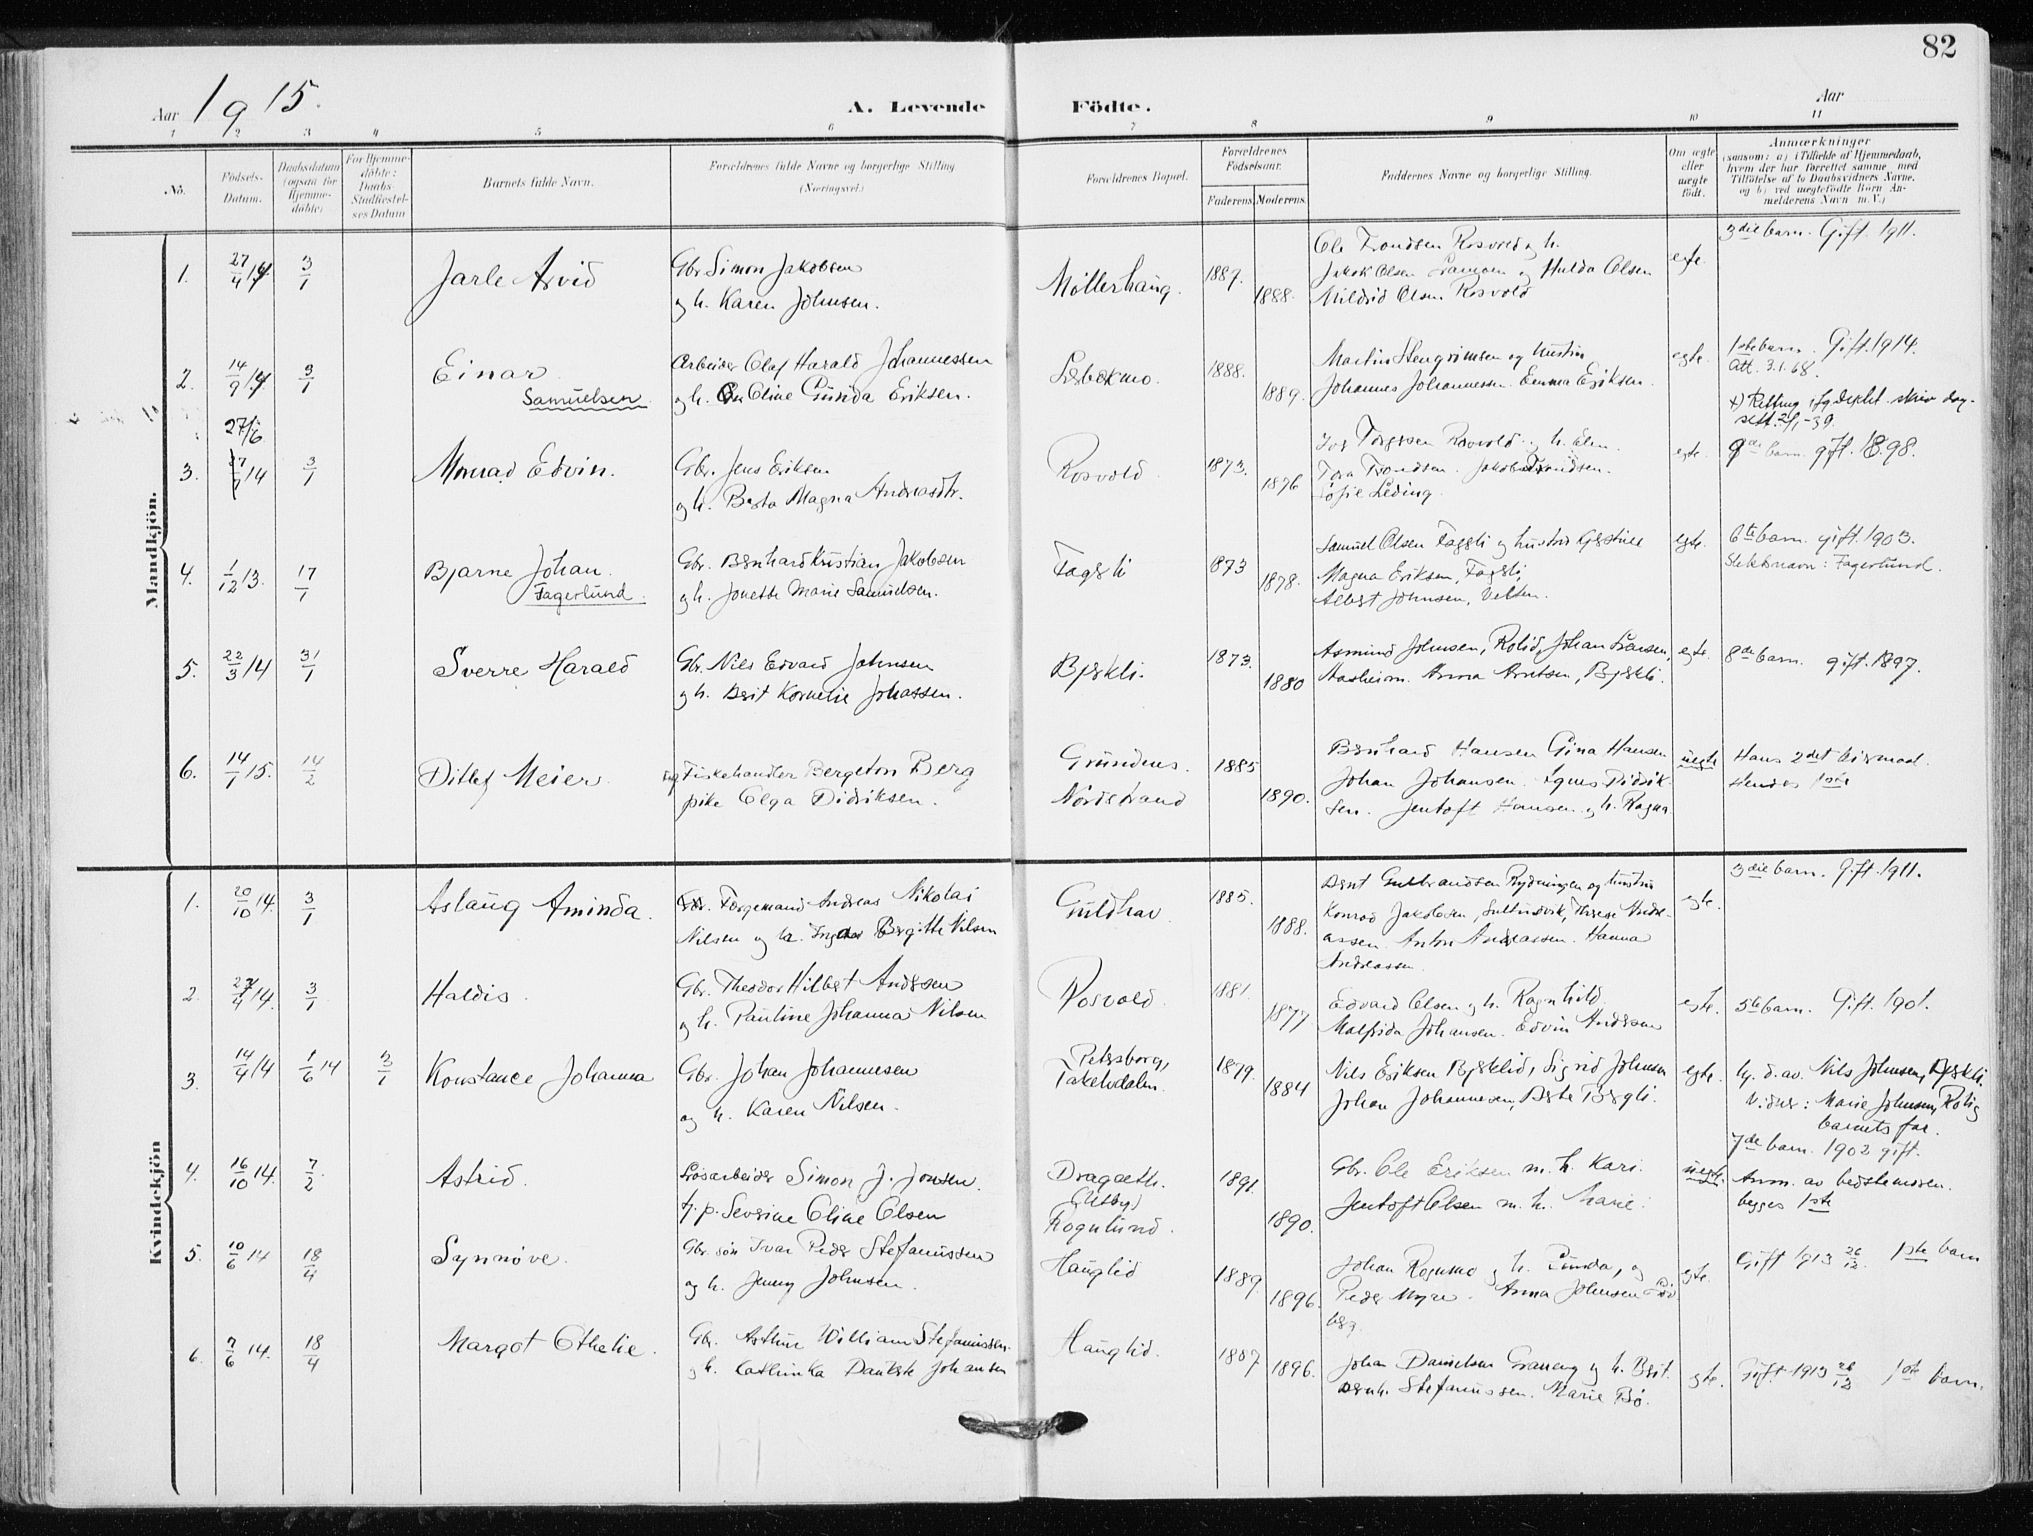 82
Aar 1915.
A. Levende Födte.
Aar
1 2 3 4 5 6 7 8 9 10 11
No.
Födsels-Datum.
Daabsdatum (ogsaa for Hjemme-döbte)
For Hjemme-döbte: Daabs-Stadfæstel-ses Datum
Barnets fulde Navn.
Forældrenes fulde Navne og borgerlige Stilling (Næringsvei)
Forældrenes Bopæl.
Forældrenes Födselsaar.
Faderens Moderens
Faddernes Navne og borgerlige Stilling.
Om ægte eller uægte födt.
Anmærkninger
(saasom: a) i Tilfælde af Hjemmedaab, hvem der har forrettet samme med Tilföielse af to Daabsvidners Navne, og b) ved uægtefödte Börn An-melderens Navn m.V.)
Mandkjön.
1. 27/4 14 3/1 Jarle Arvid
Gbr. Simon Jakobsen
og h. Karen Johnsen.
Möllerhaug. 1887. 1888.
Ole Trondsen Rosvold og h.
Jakob Olsen og Hulda Olsen
Mildrid Olsen Rosvold
egte. 3die barn. Gift. 1911.
2. 14/9 14 3/1 Einar Samuelsen
Arbeider Olaf Harald Johannessen
og h. Oline Gunda Eriksen.
1888. 1889.
Martin Stengrimsen og hustru
Johannes Johannessen. Emma Eriksen.
egte. 1ste barn. Gift. 1914.
Att. 3.1.68.
3. 27/6 14 3/1 Monrad Edvin.
Gbr. Jens Eriksen
og h. Berta Magna Andreasdtr.
Rosvold 1873. 1876
Rosvold og h. Elen
Tora Trondsen. Jakob Trondsen.
Sofie Leding.
egte. barn. gift. 1898.
4. 1/12 13. 17/1 Bjarne Johan. Fagerlund.
Gbr. Bernhard Kristian Jakobsen
og h. Jonette Marie Samuelsen.
Fagerli 1873 1878.
Samuel Olsen Fagerli og hustru
Magna Eriksen, Fagerli,
Albert Johnsen,
egte. 6te barn. gift. 1903.
Slektsnavn: Fagerlund.
5. 22/3 14 31/1 Sverre Harald
Gbr. Nils Edvard Johnsen
og h. Berit Kornelie Johassen.
Bjerkli. 1873. 1880
Asmund Johnsen, Rolid, Johan Larsen,
Aasheim. Anna Arntsen, Bjerkli.
egte. 8de barn. gift. 1897.
6. 14/1 15. 14/2 Ditlef Meier
Fiskehandler Bergeton Berg
pike Olga Didriksen.
Grundnes. Nordstrand 1885 1890.
Bernhard Hansen Gina Hansen
Johan Johansen. Agnes Didrik-
sen. Jentoft Hansen og h. Ragna
uegte Hans 2det leiermaal.
Hendes 1ste
Kvindekjön
1. 20/10 14. 3/1 Aslaug Aminda.
Forgemand Andreas Nikolai
Nilsen og h. Birgitte Nilsen
Guldhav 1885. 1888.
Bernt Gulbrandsen Rydningen og hustru
Konrad Jakobsen, Guldhav, Therese Andre-
assen. Anton Andreassen. Hanna
Andreassen.
egte. 3die barn. Gift. 1911.
2. 14. 3/1 Haldis.
Gbr. Theodor Hilbert Andersen
og h. Pauline Johanna Nilsen
Rosvold. 1881. 1877
Edvard Olsen og h. Ragnhild.
Malfrida Johansen. Edvin Andersen
egte. 5te barn. Gift. 1901.
3. 14/4 14 1/6 14 3/1 Konstance Johanna
Gbr. Johan Johannesen
og h. Karen Nilsen.
Petersborg, Takelvdalen. 1879. 1884
Nils Eriksen Bjerklid, Sigrid Johnsen
Johan Johannesen, Berte Bergli.
egte. hj. d. av. Nils Johnsen, Bjerkli.
Vidner: Marie Johnsen, Rolig
barnets far.
7de barn. 1902 gift.
4. 16/10 14. 7/2 Astrid.
Lösarbeider Simon J. Jonsen.
tj. p. Severine Oline Olsen
Rognlund. 1891. 1890.
Gbr. Ole Eriksen m. h. Kari.
Jentoft Olsen m. h. Marie.
uegte. Anm. av bedstemoren.
begges 1ste
5. 10/6 14 18/4 Synnöve.
Gbr. sön Ivar Peder Stefanussen
og h. Jenny Johnsen.
Hauglid 1889. 1896.
Johan Rognmo og h. Gunda, og
Peder Myre. Anna Johnsen
egte. Gift 1913 26/12. 1ste barn
6. 7/6 14. 18/4 Margot Othelie.
Gbr. Arthur William Stefanussen.
og h. Kathinka Johansen
Hauglid. 1887 1896.
Johan Danielsen og h. Berit.
Stefanussen. Marie Bö.
egte. Gift. 1913 26/12 1ste barn.